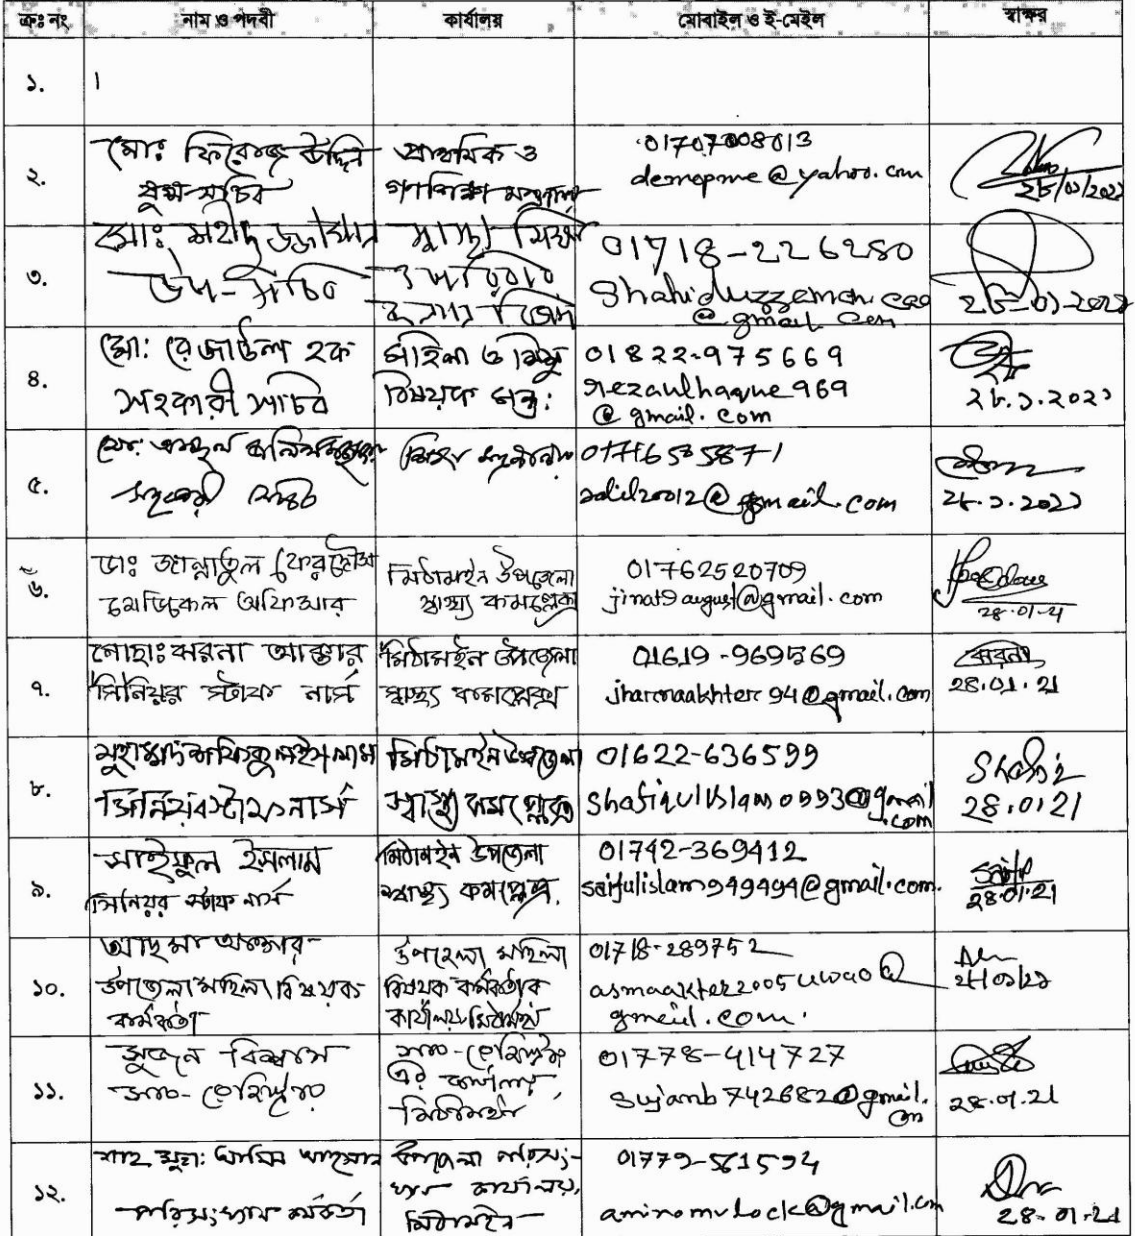 ক্রঃ নং নাম ও পদবী কার্যালয় মোবাইল ও ই-মেইল স্বাক্ষর
১. ।
২.
মোঃ ফিরোজ উদ্দিন
যুগ্ম-সচিব
প্রাথমিক ও
গণশিক্ষা
01707008013
demopme@yahoo.com
৩.
মোঃ শহীদুজ্জামান
উপ-সচিব
স্বাস্থ্য শিক্ষা
ও পরিবার
কল্যাণ বিভাগ
01718-226280
@gmail.com
৪.
মোঃ রেজাউল হক
সহকারী সচিব
মহিলা ও শিশু
বিষয়ক মন্ত্র:
01822-975669
rezaulhaque969
@gmail.com
২৮.১.২০২১
৫.
মোঃ
সহকারী সচিব
শিক্ষা মন্ত্রণালয়
@gmail.com
২৮.১.২০২১
৬.
ডাঃ জান্নাতুল ফেরদৌস
মেডিকেল অফিসার
মিঠামইন উপজেলা
স্বাস্থ্য কমপ্লেক্স
01762520709
jinat9august@gmail.com
28-01-21
৭.
মোছাঃ ঝরনা আক্তার
সিনিয়র স্টাফ নার্স
মিঠামইন উপজেলা
স্বাস্থ্য কমপ্লেক্স
01619-969569
jharnaakhter94@gmail.com
ঝরনা
28.01.21
৮.
মুহাম্মদ শফিকুল ইসলাম
সিনিয়র স্টাফ নার্স
মিঠামইন উপজেলা
স্বাস্থ্য কমপ্লেক্স
01622-636599
shafiqulislam0993@gmail
.com
28.01.21
৯.
সাইফুল ইসলাম
সিনিয়র স্টাফ নার্স
মিঠামইন উপজেলা
স্বাস্থ্য কমপ্লেক্স
01742-369412
saifulislam949494@gmail.com.
28.01.21
১০.
আছমা আক্তার
উপজেলা মহিলা বিষয়ক
কর্মকর্তা
উপজেলা মহিলা
বিষয়ক কর্মকর্তার
কার্যালয়, মিঠামইন
01718-289752
asmaakter2005uwao@
gmail.com.
১১.
সুজন বিশ্বাস
সাব-রেজিস্ট্রার
সাব-রেজিস্ট্রার
এর কার্যালয়,
মিঠামইন
01778-414727
sujanb742682@gmail.
com
28.01.21
১২.
শাহ মুহা: আমিন
পরিসংখ্যান কর্মকর্তা
উপজেলা পরিসং-
খ্যান কার্যালয়,
মিঠামইন
01779-561594
@gmail.com
28-01-21